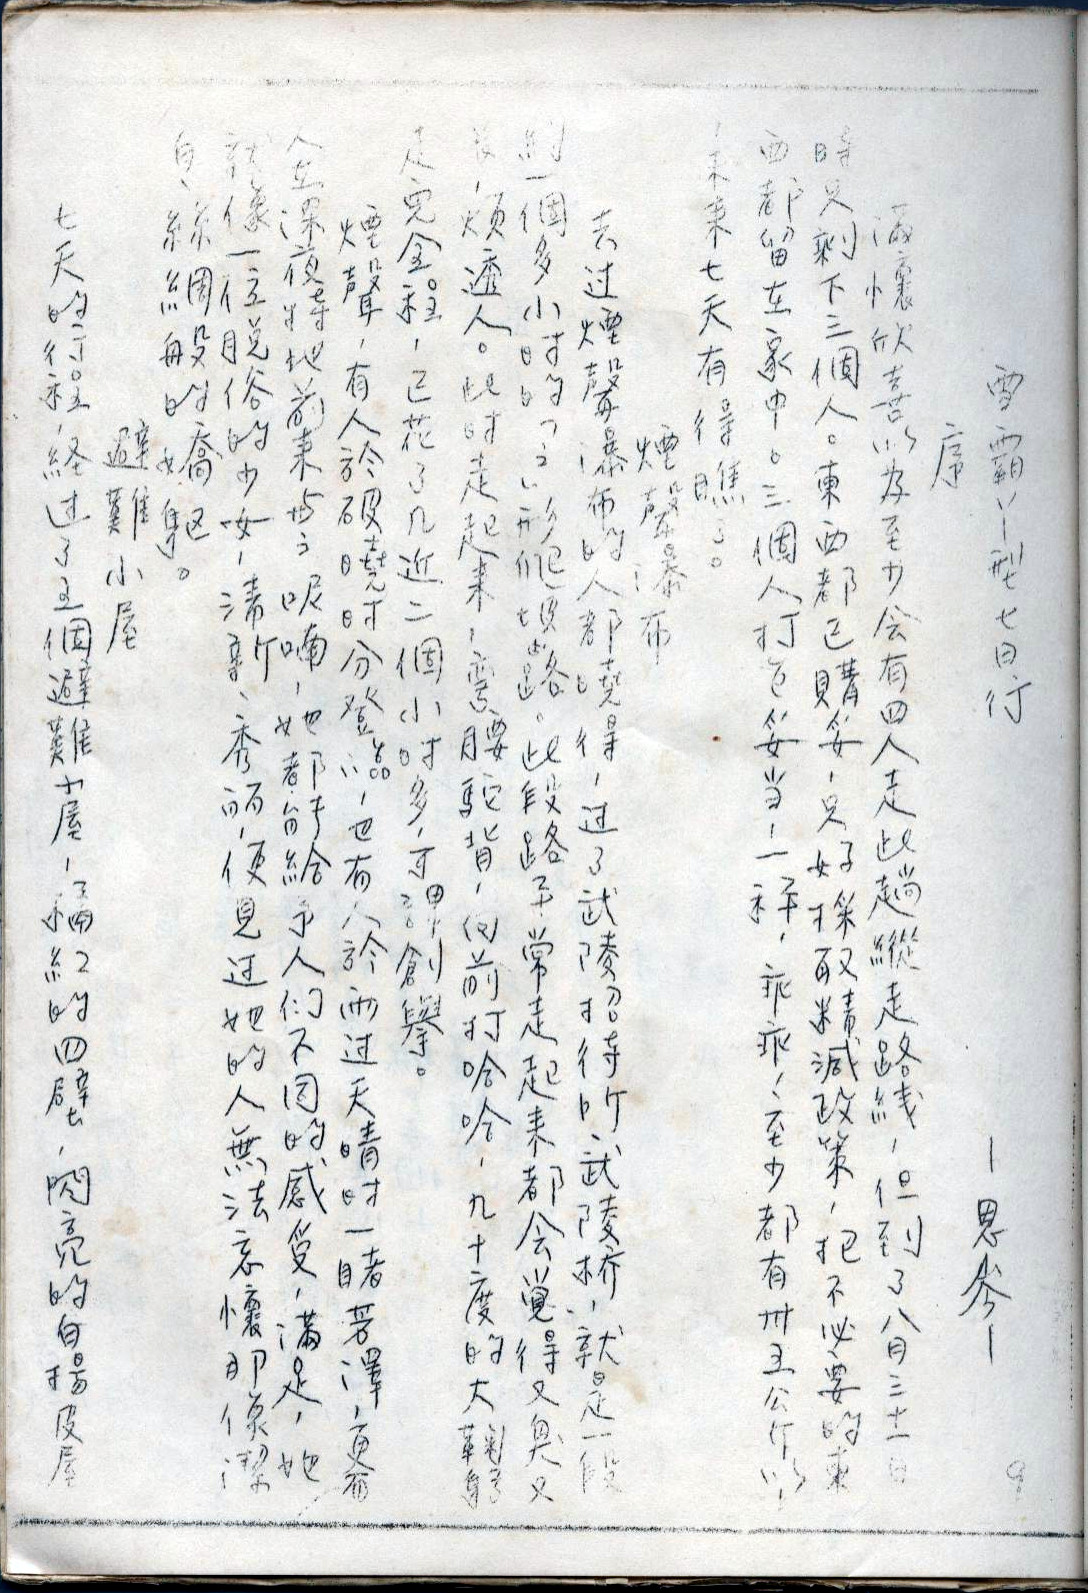 雪霸丫型七日行
—思岑—
序
滿懷欣喜以为至少会有四人走此趟縱走路线，但到了八月三十一日
時只剩下三個人。東西都已購妥，只好採取精減政策，把不必要的東
西都留在家中。三個人打包妥当，一秤，乖乖！至少都有卅五公斤以上
，未来七天有得瞧了。
煙聲瀑布
去过煙聲瀑布的人都曉得，过了武陵招待所、武陵桥，就是一段
約一個多小時的「之」形爬坡路。此段路平常走起来都会覚得又臭又
長，煩透人。此时走起来，彎腰駝背，向前打哈哈，九十度的大鞠躬
走完全程，已花了几近二個小时多，可謂創舉。
煙聲，有人於破曉时分登临，也有人於雨过天晴时一睹芳澤，更有
人在深夜特地前来与之呢喃，她都能給予人们不同的感受，滿足，她
就像一位脱俗的少女，清新、秀丽，便見过她的人無法忘懷那像潔
白、絲綢般的喬
絲絹般的身。
避難小屋
七天的行程，経过了五個避難小屋，褐红的四壁，閃亮的白楊皮屋
9